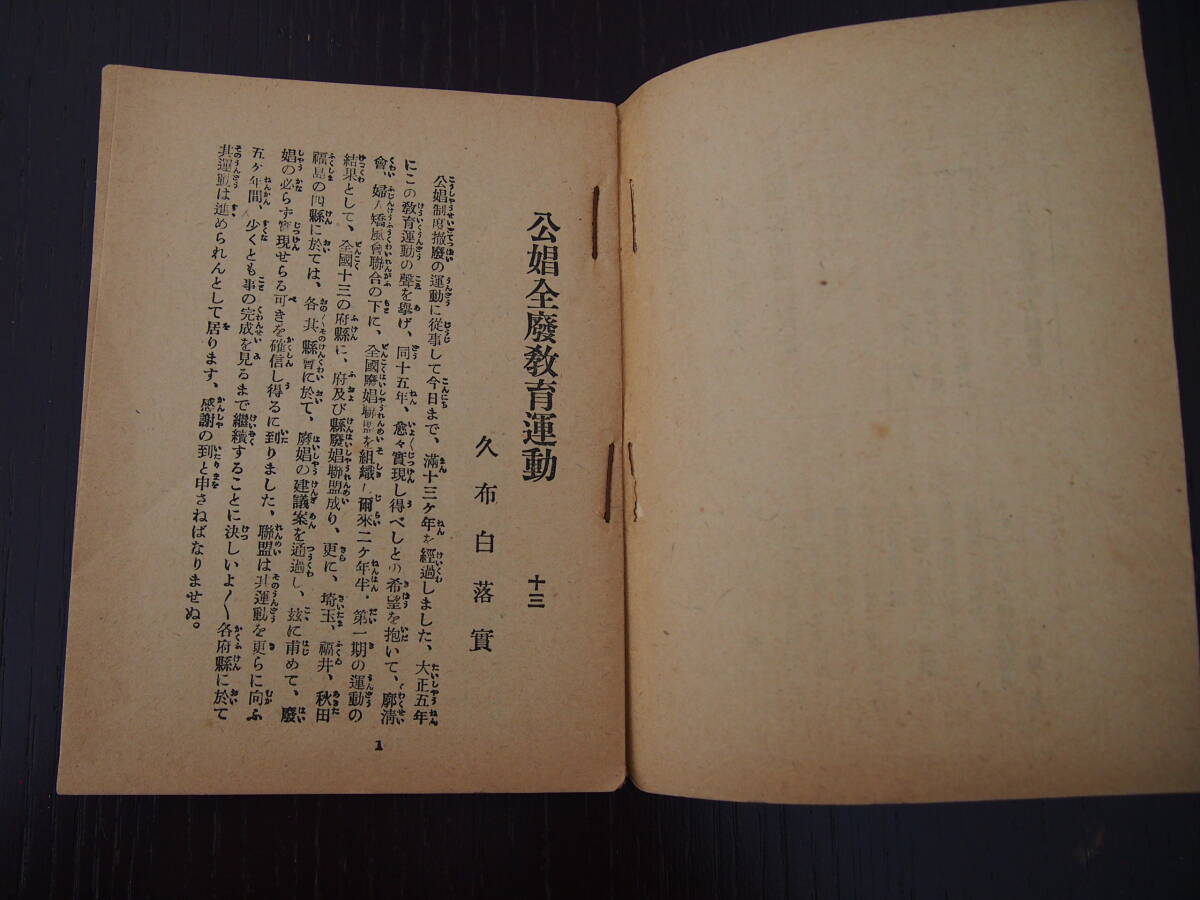 公娼全廢教育運動 十三
久布白落實
公娼制度撤廢の運動に從事して今日まで、滿十三ケ年を經過しました、大正五年
にこの敎育運動の聲を擧げ、同十五年、愈々實現し得べしとの希望を抱いて、廓淸
會、婦人矯風會聯合の下に、全國廢娼聯盟を組織し爾來二ケ年半・第一期の運動の
結果として、全國十三の府縣に、府及び縣廢娼聯盟成り、更に、埼玉、福井、秋田
福島の四縣に於ては、各其縣會に於て、廢娼の建議案を通過し、玆に甫めて、廢
娼の必らず實現せらる可きを確信し得るに到りました、聯盟は其運動を更らに向ふ
五ケ年間、少くとも事の完成を見るまで繼續することに決しいよ〳〵各府縣に於て
其運動は進められんとして居ります、感謝の到と申さねばなりませぬ。
1